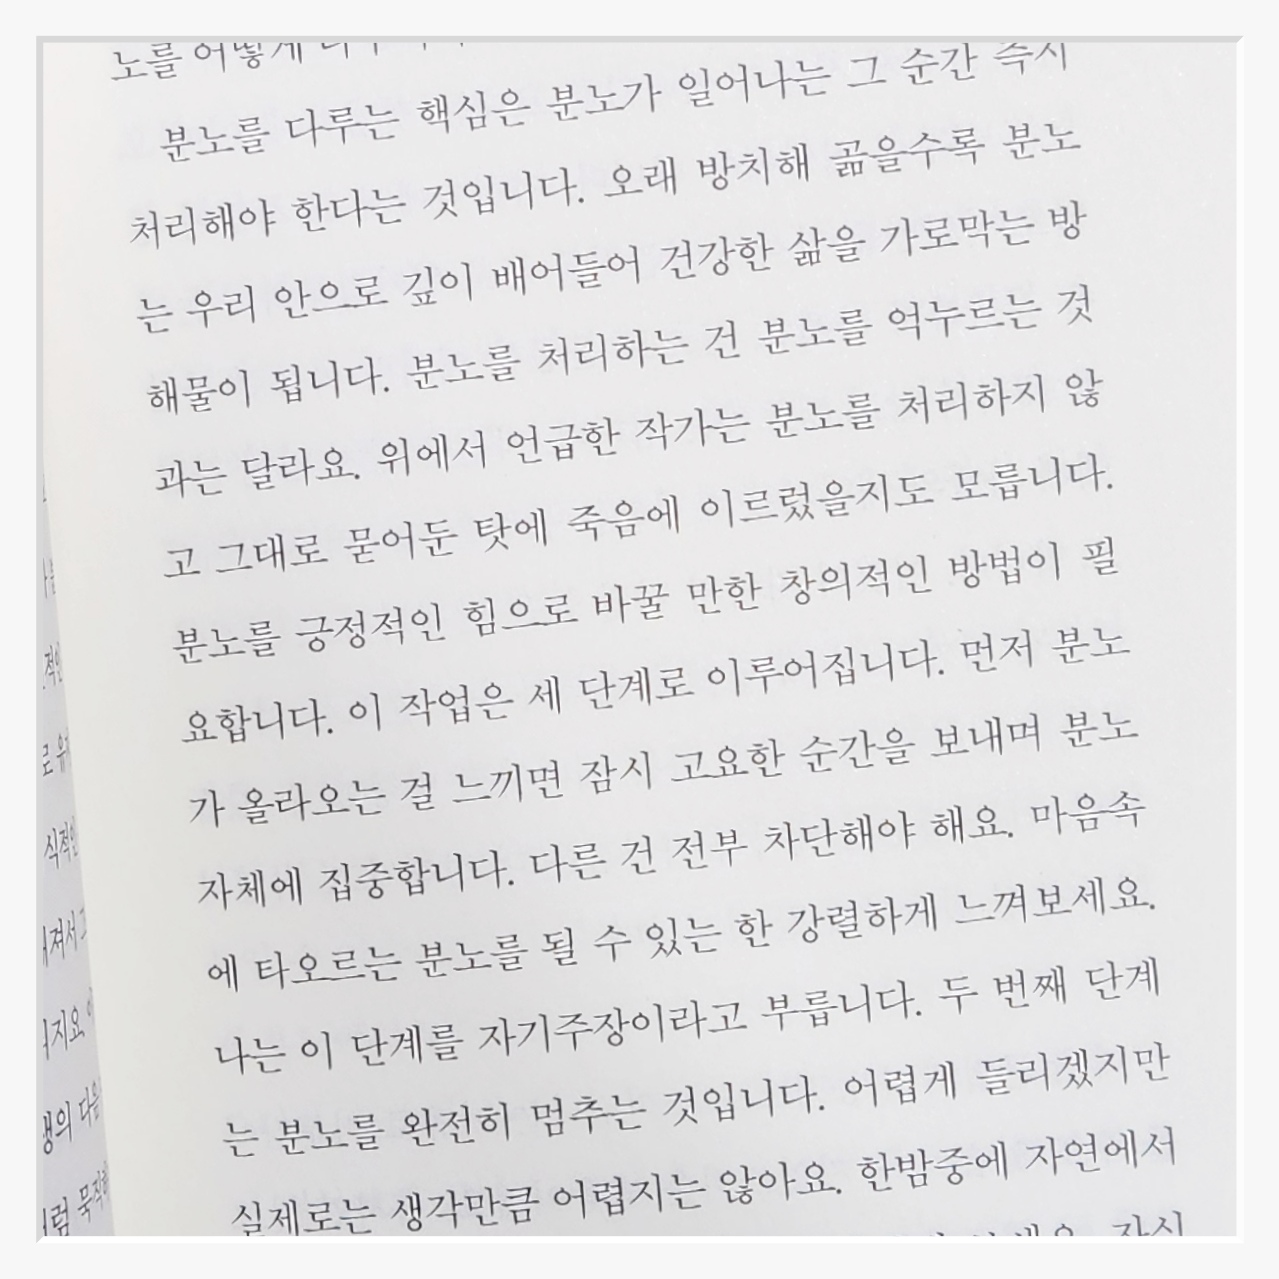 노를 어떻게
분노를 다루는 핵심은 분노가 일어나는 그 순간 즉시
처리해야 한다는 것입니다. 오래 방치해 곪을수록 분노
는 우리 안으로 깊이 배어들어 건강한 삶을 가로막는 방
해물이 됩니다. 분노를 처리하는 건 분노를 억누르는 것
과는 달라요. 위에서 언급한 작가는 분노를 처리하지 않
고 그대로 묻어둔 탓에 죽음에 이르렀을지도 모릅니다.
분노를 긍정적인 힘으로 바꿀 만한 창의적인 방법이 필
요합니다. 이 작업은 세 단계로 이루어집니다. 먼저 분노
가 올라오는 걸 느끼면 잠시 고요한 순간을 보내며 분노
자체에 집중합니다. 다른 건 전부 차단해야 해요. 마음속
에 타오르는 분노를 될 수 있는 한 강렬하게 느껴보세요.
나는 이 단계를 자기주장이라고 부릅니다. 두 번째 단계
는 분노를 완전히 멈추는 것입니다. 어렵게 들리겠지만
실제로는 생각만큼 어렵지는 않아요. 한밤중에 자연에서